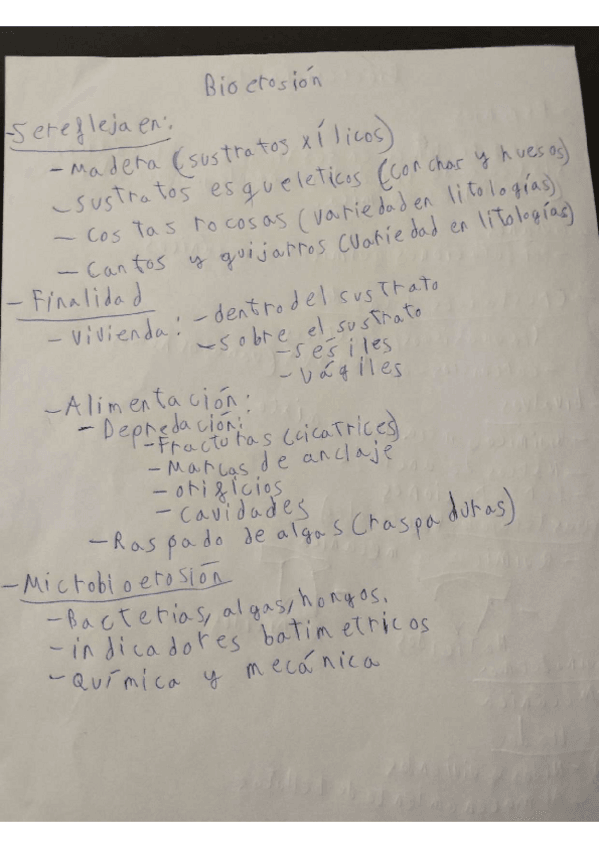 Bioerosión
-Se refleja en:
- Madera (sustratos xílicos)
- sustratos esqueleticos (conchas y huesos)
- Costas rocosas (variedad en litologías)
- Cantos y guijarros (variedad en litologías)
- Finalidad
- Vivienda: - dentro del sustrato
- sobre el sustrato
- sésiles
- vágiles
- Alimentación:
- Depredación:
- Fracturas (cicatrices)
- Marcas de anclaje
- orificios
- cavidades
- Raspado de algas (raspaduras)
- Microbioerosión
- Bacterias, algas, hongos.
- indicadores batimetricos
- Química y mecánica